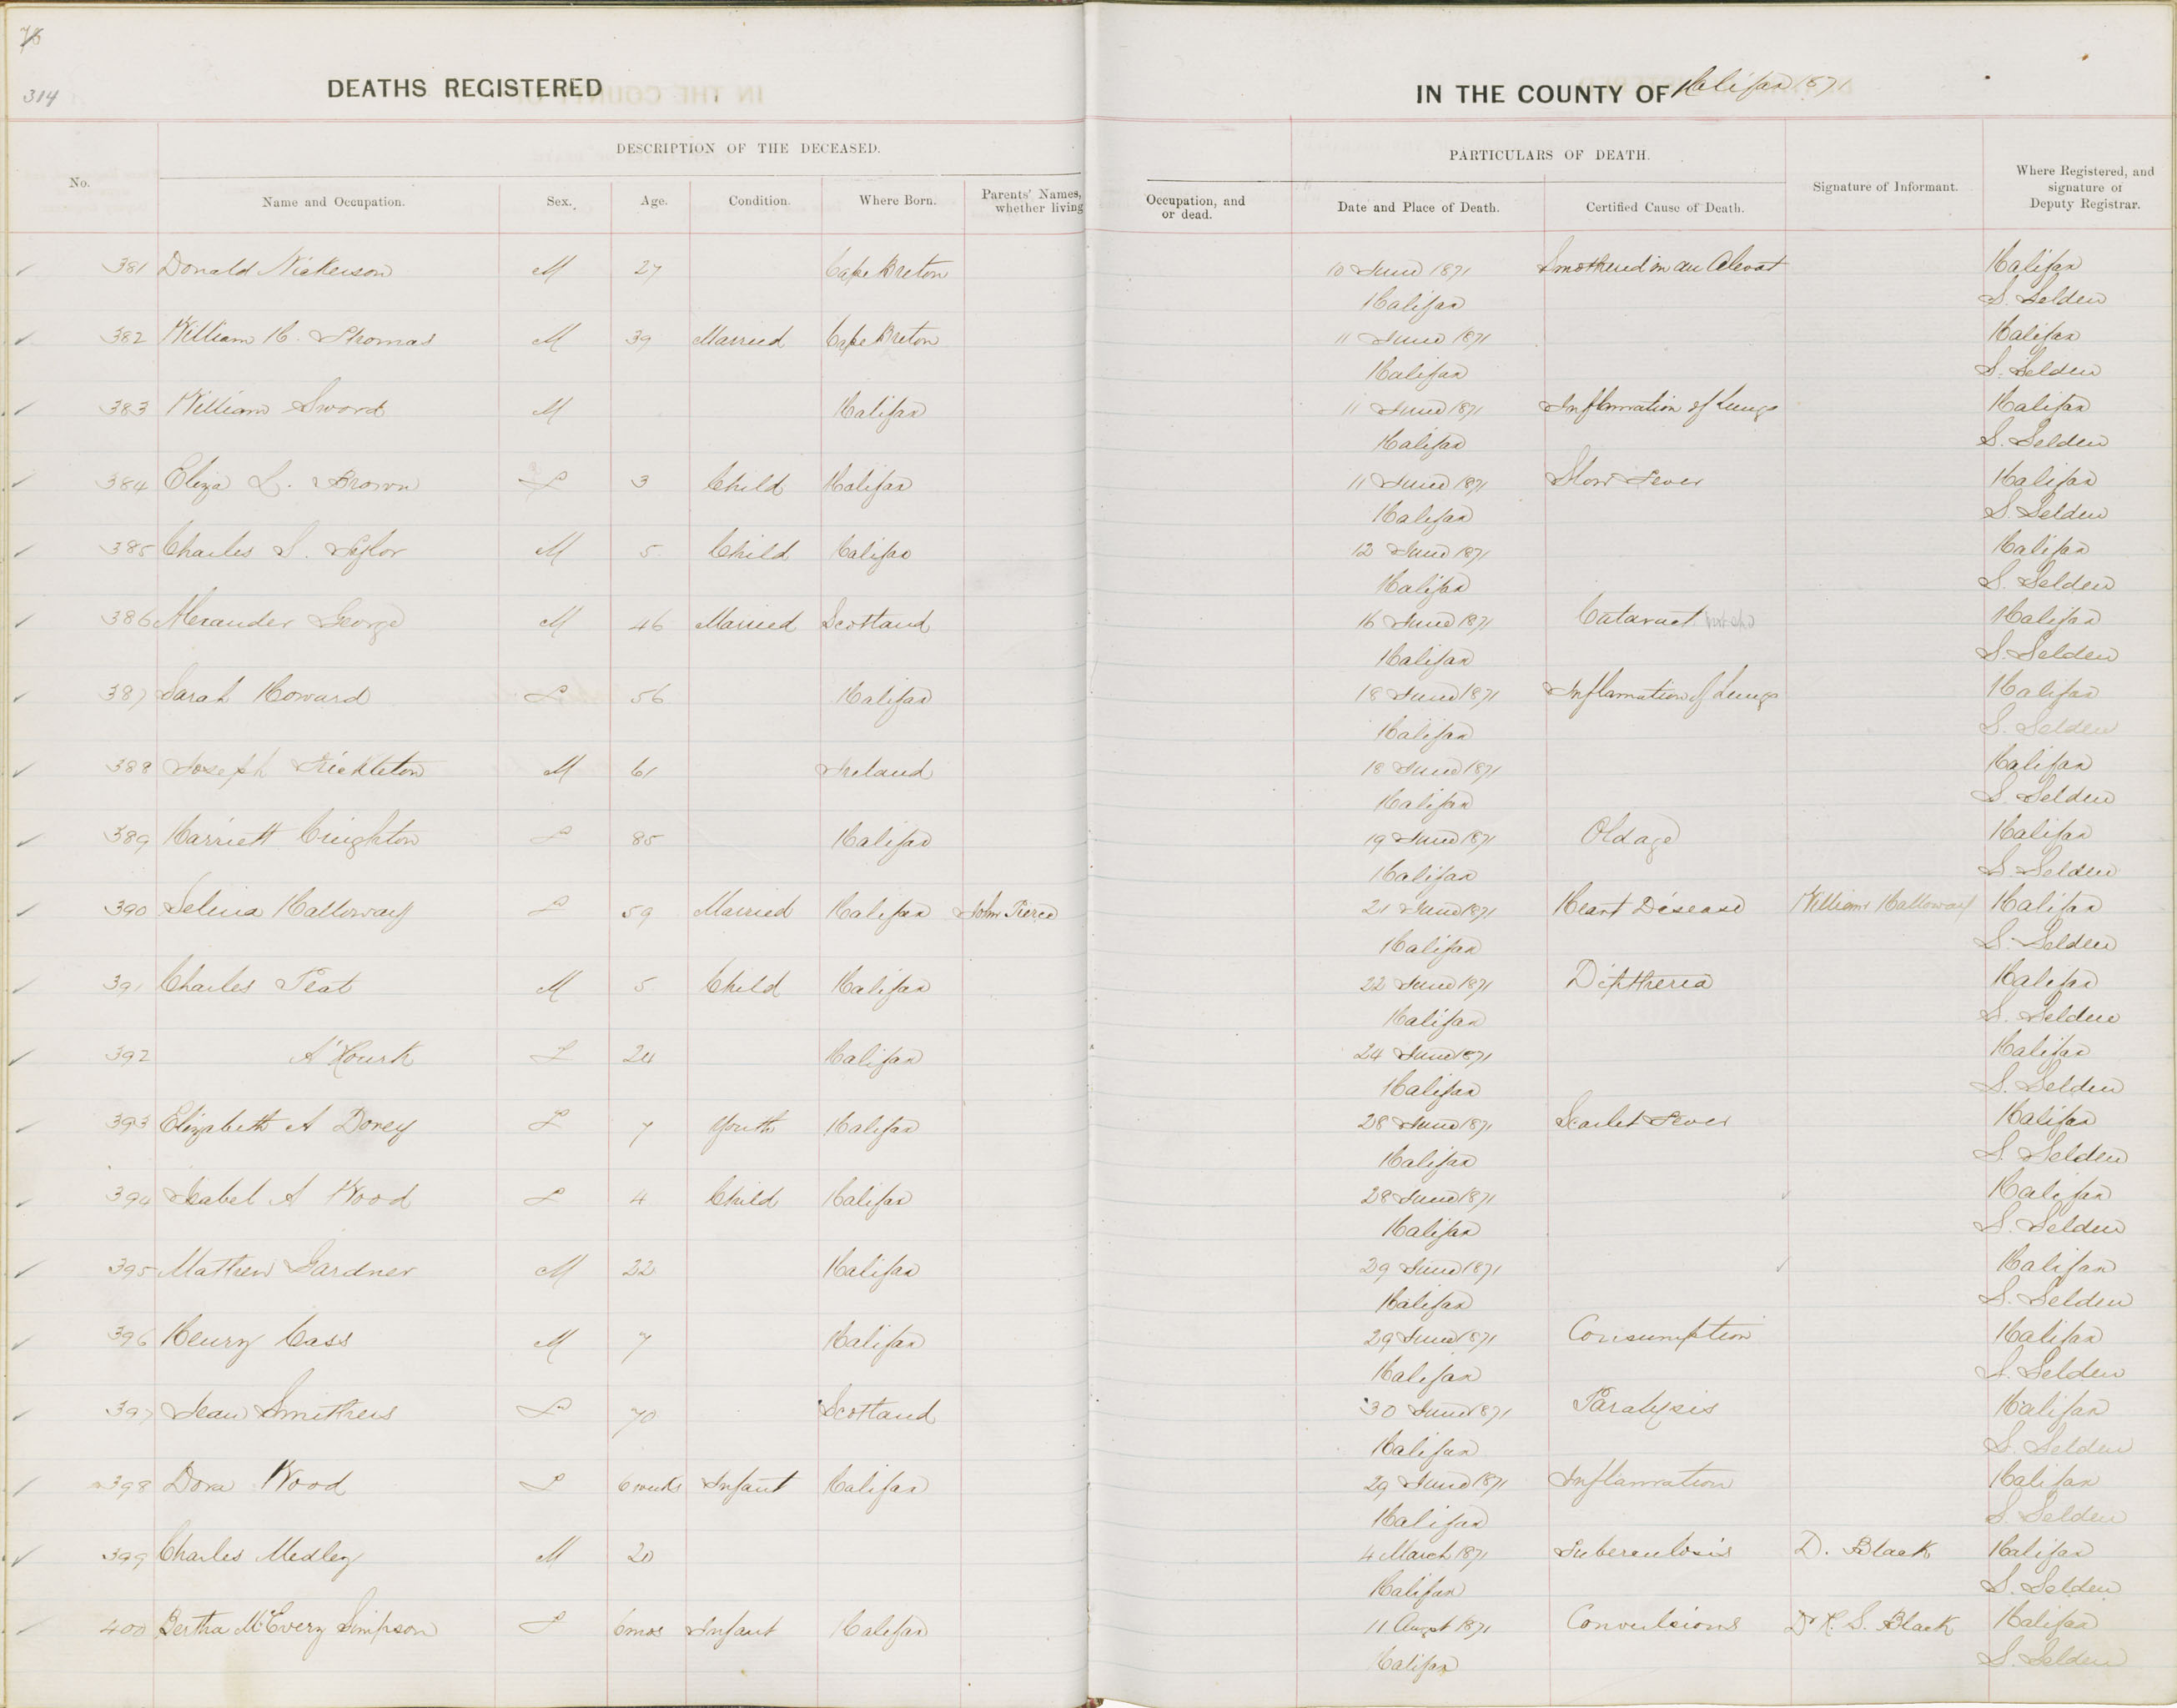 314
DEATHS REGISTERED
IN THE COUNTY OF Halifax 1871
DESCRIPTION OF THE DECEASED.
PARTICULARS OF DEATH.
No.
Name and Occupation.
Sex.
Age.
Condition.
Where Born.
Parents' Names, whether living
Occupation, and or dead.
Date and Place of Death.
Certified Cause of Death.
Signature of Informant.
Where Registered, and signature of Deputy Registrar.
381 Donald Nickerson M 27 Cape Breton 10 June 1871 Smothered in an Halifax
Halifax S. Selden
382 William H. Thomas M 39 Married Cape Breton 11 June 1871 Halifax
Halifax S. Selden
383 William Sword M Halifax 11 June 1871 Inflamation of Lungs Halifax
Halifax S. Selden
384 Eliza L. Brown F 3 Child Halifax 11 June 1871 Slow Fever Halifax
Halifax S. Selden
385 Charles S. M 5 Child Halifax 12 June 1871 Halifax
Halifax S. Selden
386 Alexander George M 46 Married Scotland 16 June 1871 Cataract Halifax
Halifax S. Selden
387 Sarah Howard F 56 Halifax 18 June 1871 Inflamation of Lungs Halifax
Halifax S. Selden
388 Joseph M 61 Ireland 18 June 1871 Halifax
Halifax S. Selden
389 Harriett Creighton F 85 Halifax 19 June 1871 Old age Halifax
Halifax S. Selden
390 Selina Halloway F 59 Married Halifax John Pierce 21 June 1871 Heart Disease William Halloway Halifax
Halifax S. Selden
391 Charles Peat M 5 Child Halifax 22 June 1871 Diptheria Halifax
Halifax S. Selden
392 F 24 Halifax 24 June 1871 Halifax
Halifax S. Selden
393 Elizabeth A Doney F 7 Youth Halifax 28 June 1871 Scarlet Fever Halifax
Halifax S. Selden
394 Isabel A Wood F 4 Child Halifax 28 June 1871 Halifax
Halifax S. Selden
395 Mathew Gardner M 22 Halifax 29 June 1871 Halifax
Halifax S. Selden
396 Henry Cass M 7 Halifax 29 June 1871 Consumption Halifax
Halifax S. Selden
397 Jean Smithers F 70 Scotland 30 June 1871 Paralysis Halifax
Halifax S. Selden
398 Dora Wood F 6 weeks Infant Halifax 29 June 1871 Inflamation Halifax
Halifax S. Selden
399 Charles Medley M 20 4 March 1871 Tuberculosis D. Black Halifax
Halifax S. Selden
400 Bertha McEvery Simpson F 6 mos Infant Halifax 11 August 1871 Convulsions Dr R. S. Black Halifax
Halifax S. Selden